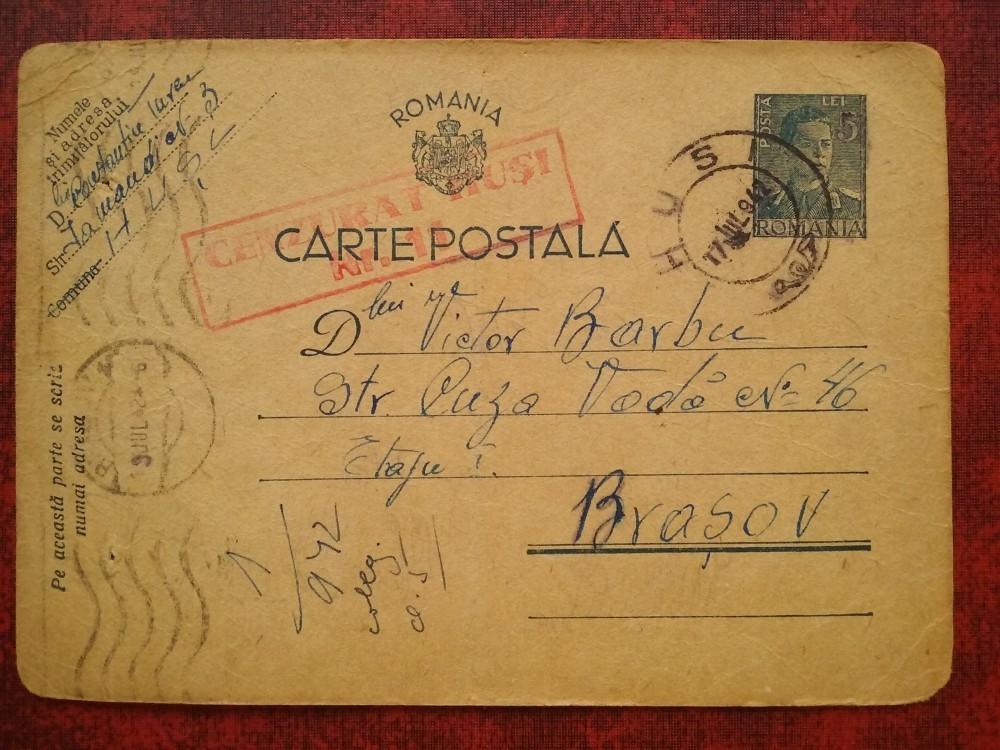 Numele
și adresa
trimițătorului
D Constantin
Str.
Comuna HUȘI
ROMANIA
CENZURAT HUȘI
Nr.
CARTE POSTALĂ
POSTA LEI 5
ROMANIA
HUSI
17 IUL 942
Dlui Victor Barbu
Str. Cuza Vodă No 46
Etaju I.
Brașov
Pe această parte se scrie
numai adresa
IUL 42
1
942